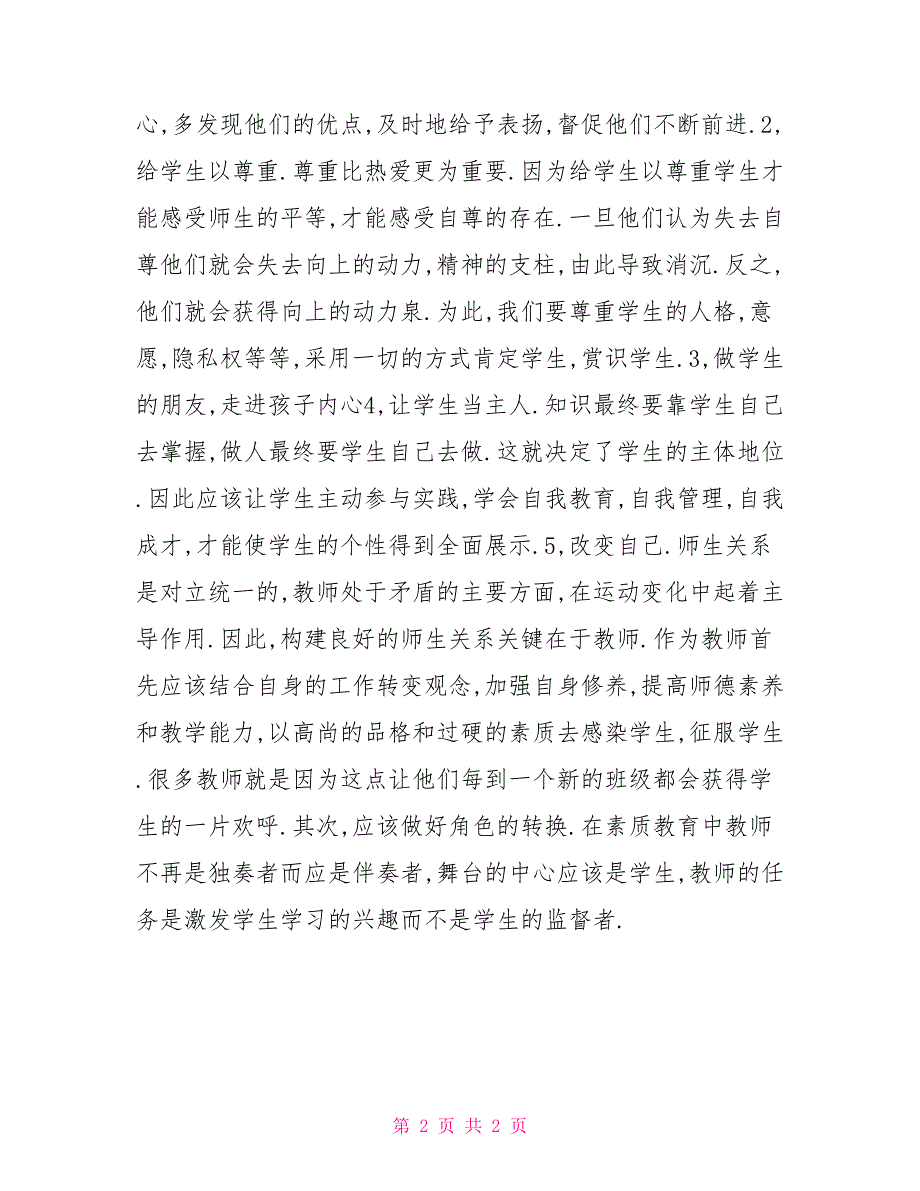 心,多发现他们的优点,及时地给予表扬,督促他们不断前进.2,
给学生以尊重.尊重比热爱更为重要.因为给学生以尊重学生才
能感受师生的平等,才能感受自尊的存在.一旦他们认为失去自
尊他们就会失去向上的动力,精神的支柱,由此导致消沉.反之,
他们就会获得向上的动力泉.为此,我们要尊重学生的人格,意
愿,隐私权等等,采用一切的方式肯定学生,赏识学生.3,做学生
的朋友,走进孩子内心4,让学生当主人.知识最终要靠学生自己
去掌握,做人最终要学生自己去做.这就决定了学生的主体地位
.因此应该让学生主动参与实践,学会自我教育,自我管理,自我
成才,才能使学生的个性得到全面展示.5,改变自己.师生关系
是对立统一的,教师处于矛盾的主要方面,在运动变化中起着主
导作用.因此,构建良好的师生关系关键在于教师.作为教师首
先应该结合自身的工作转变观念,加强自身修养,提高师德素养
和教学能力,以高尚的品格和过硬的素质去感染学生,征服学生
.很多教师就是因为这点让他们每到一个新的班级都会获得学
生的一片欢呼.其次,应该做好角色的转换.在素质教育中教师
不再是独奏者而应是伴奏者,舞台的中心应该是学生,教师的任
务是激发学生学习的兴趣而不是学生的监督者.
第 2 页 共 2 页